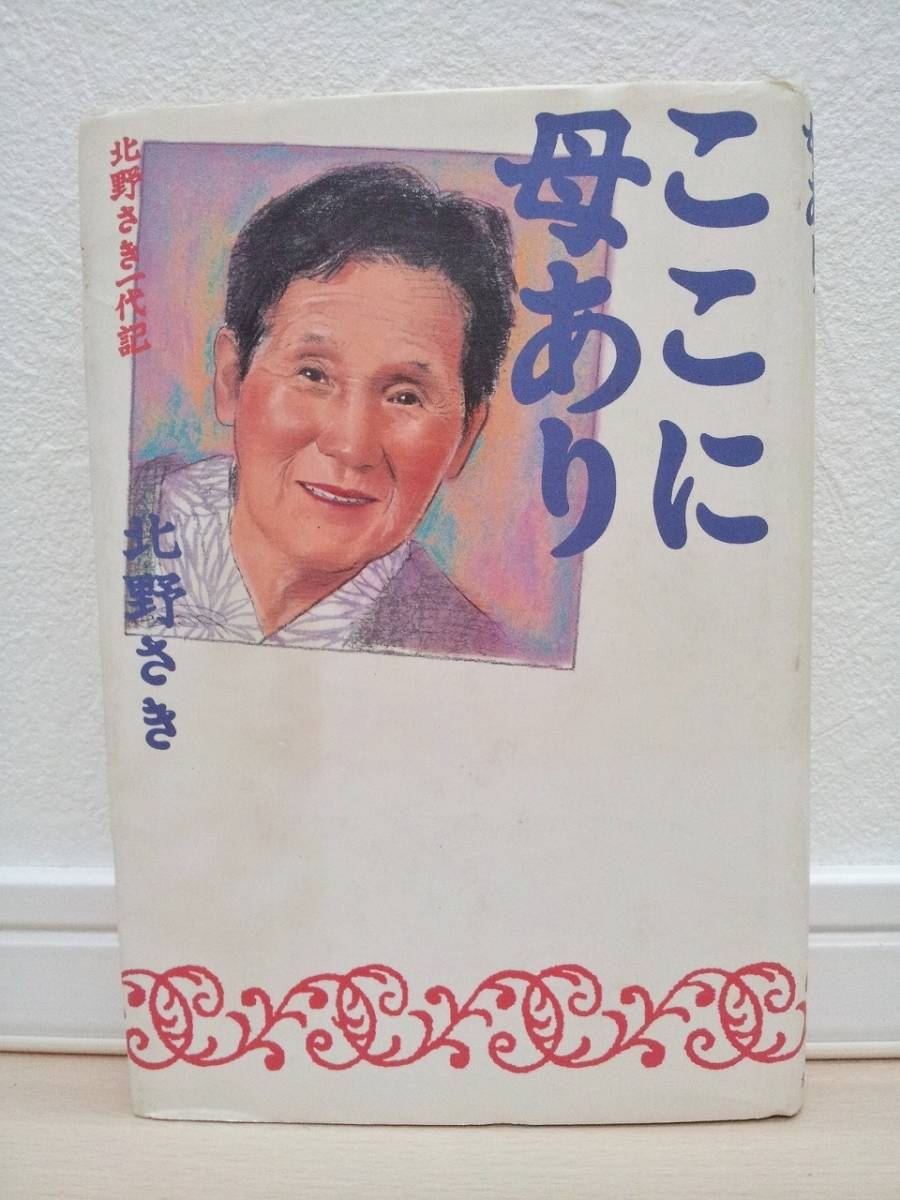 ここに
母あり
北野さき一代記
北野さき